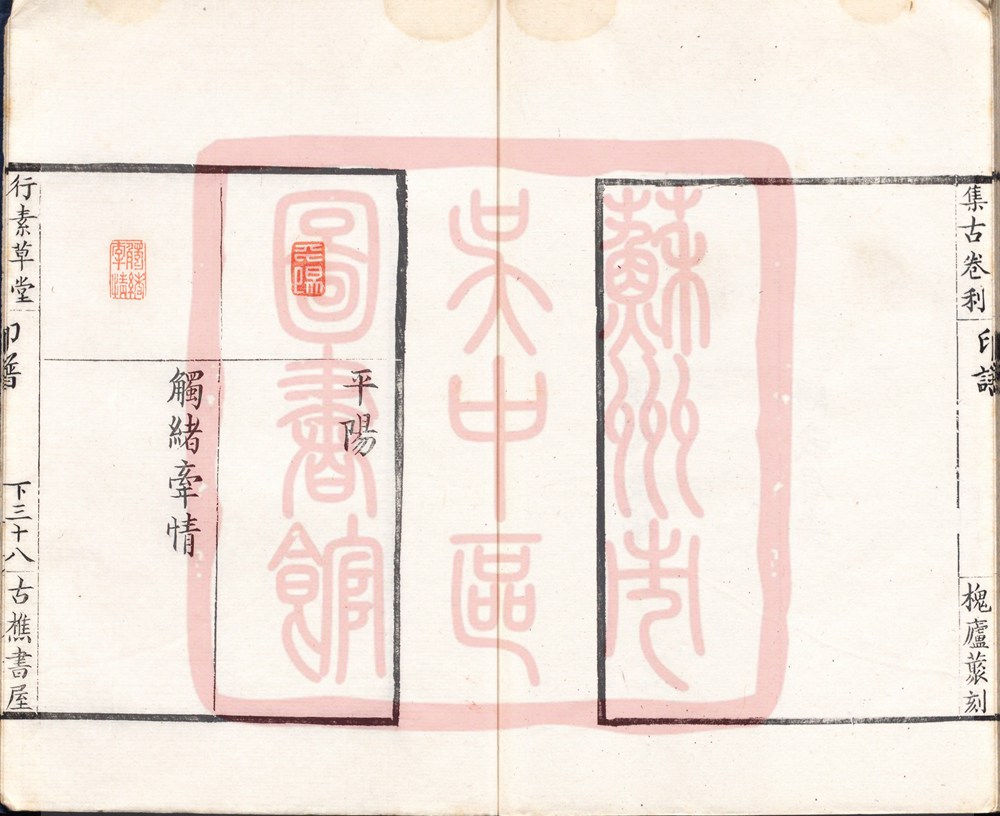 集古卷利
印譜
槐廬叢刻
蘇州市
吳中區
圖書館
平陽
平陽
觸緒牽情
觸緒牽情
行素草堂
印譜
下三十八
古樵書屋